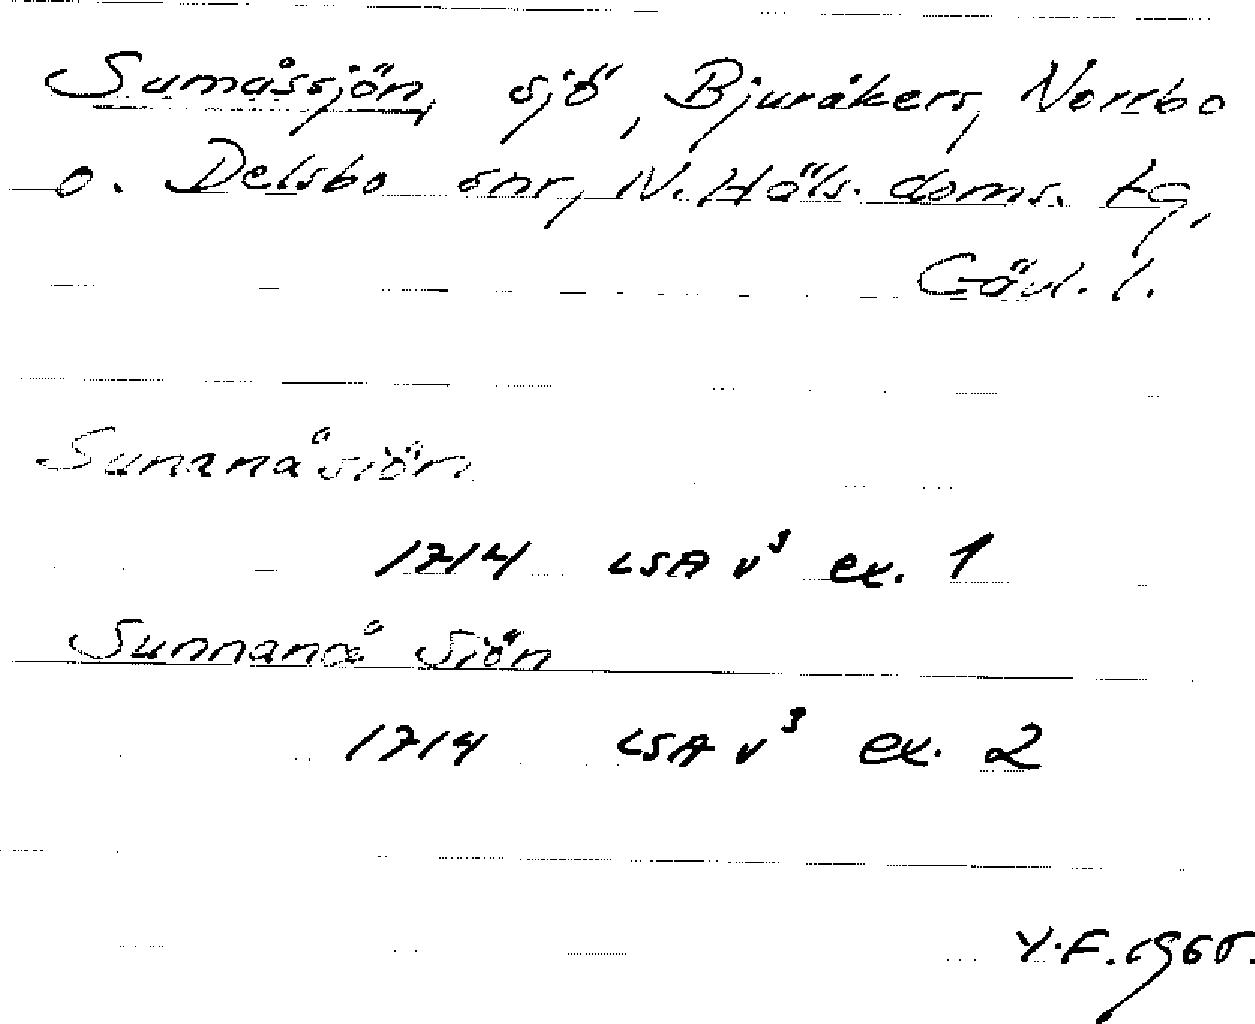 Sumåssjön, sjö, Bjuråkers, Norrbo
o. Delsbo snr, N. Häls. doms. tg,
Gävl. l.
Sunanåsiön
1714 LSA V³ ex. 1
Sunnanå Siön
1714 LSA V³ ex. 2
Y.F. 1965.